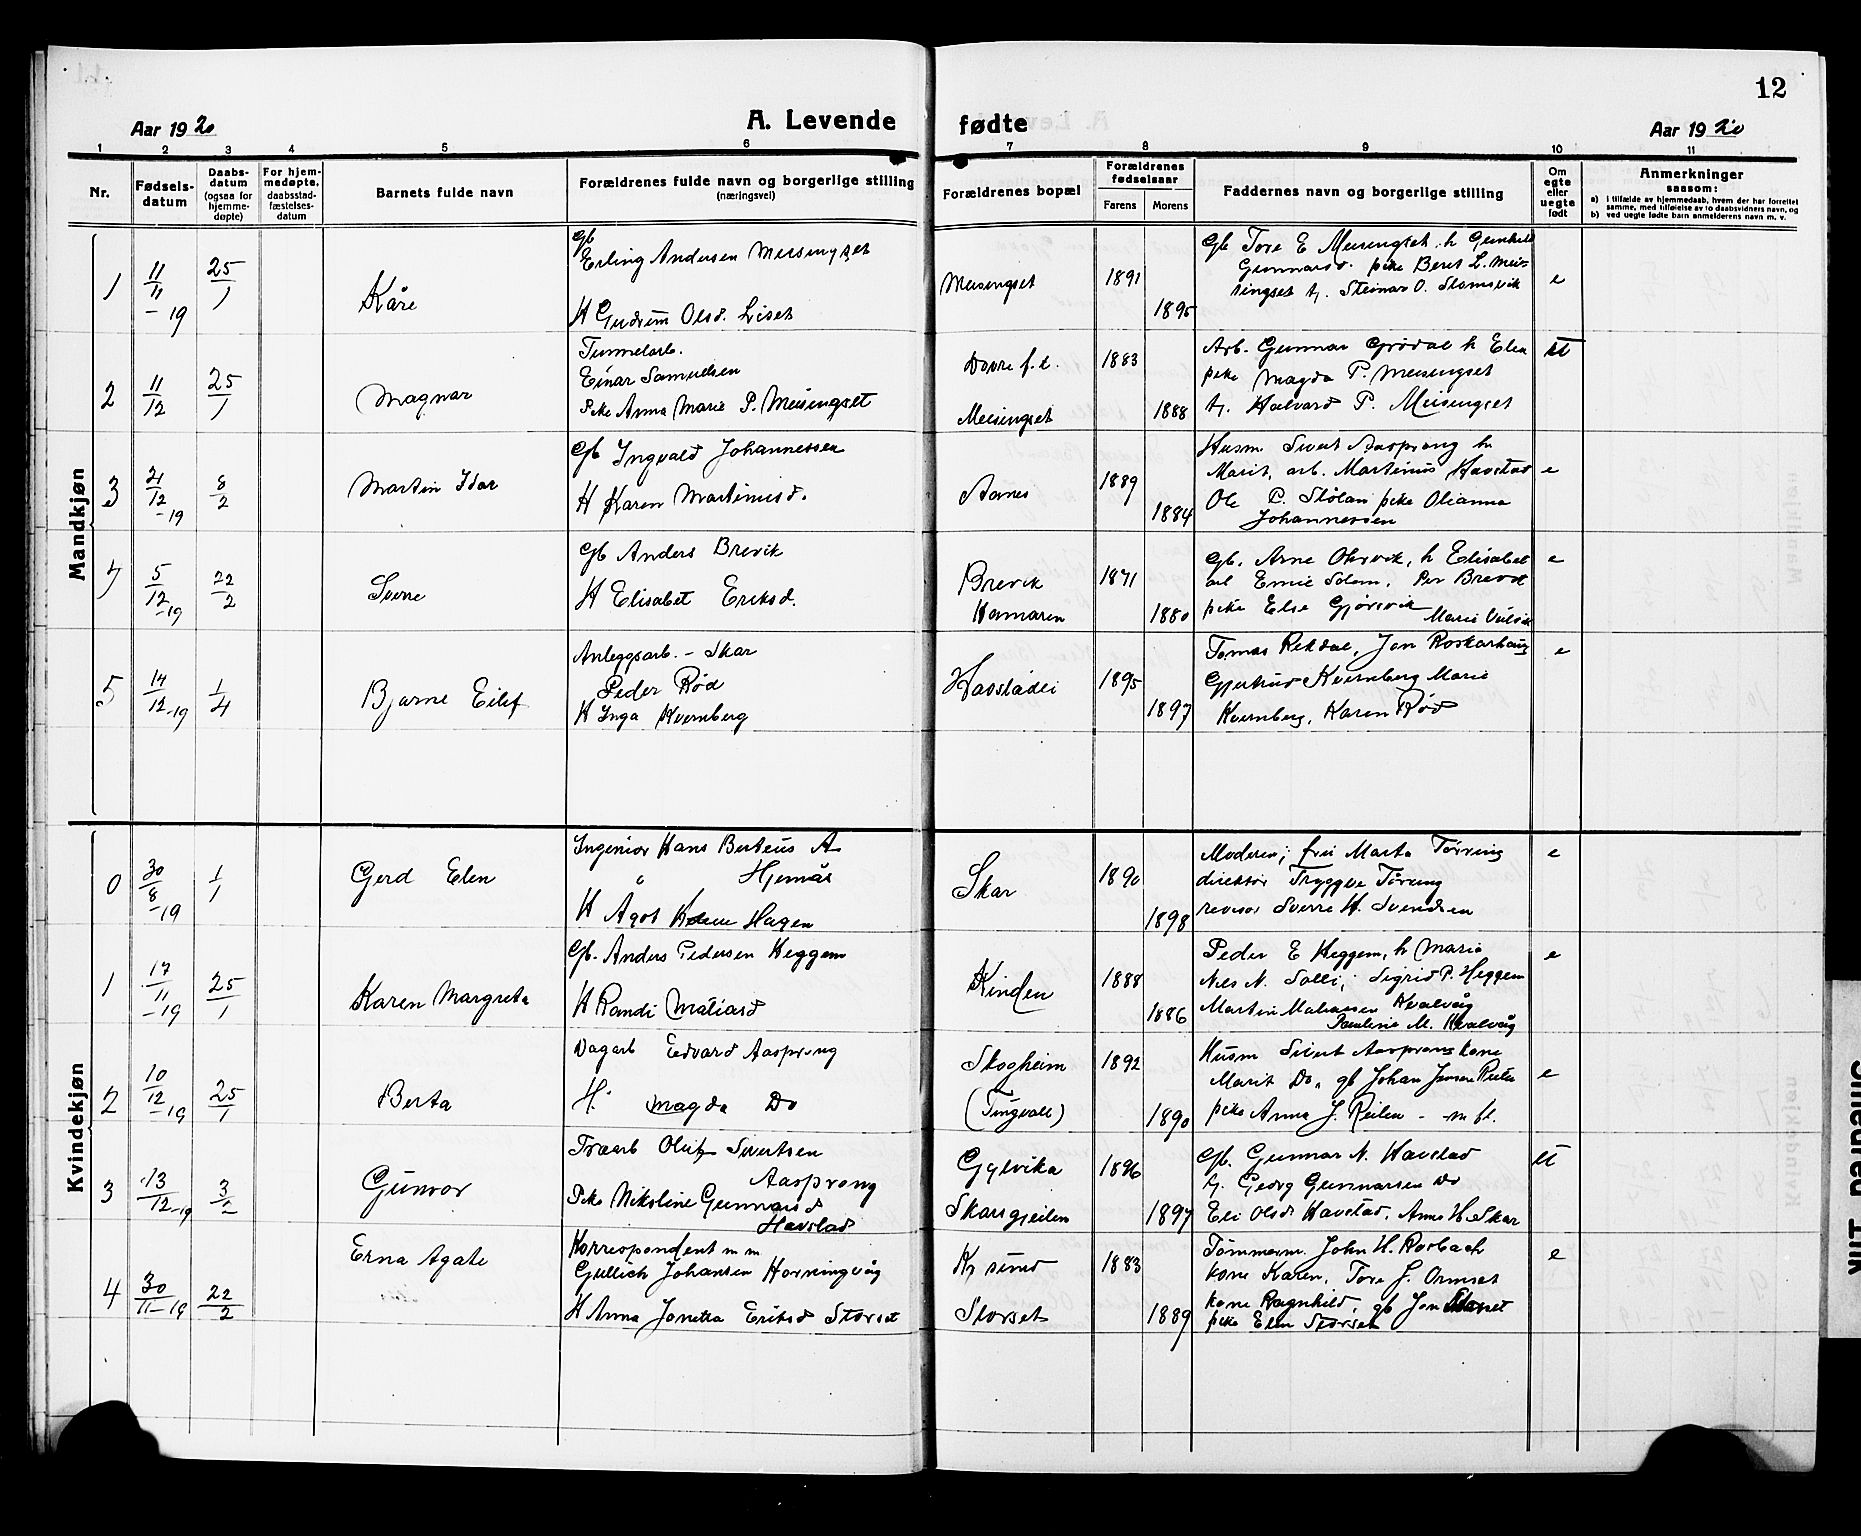 12
Aar 1920
A. Levende fødte
Aar 1920
1 2 3 4 5 6 7 8 9 10 11
Nr.
Fødsels-
datum
Daabs-
datum
(ogsaa for
hjemme-
døpte)
For hjem-
medøpte,
daabsstad-
fæstelses-
datum
Barnets fulde navn
Forældrenes fulde navn og borgerlige stilling
(næringsvei)
Forældrenes bopæl
Forældrenes
fødselsaar
Farens Morens
Faddernes navn og borgerlige stilling
Om
egte
eller
uegte
født
Anmerkninger
saasom:
a) i tilfælde av hjemmedaab, hvem der har forrettet
samme, med tilføielse av to daabsvidners navn, og
b) ved uegte fødte barn anmelderens navn m. v.
Mandkjøn
1 11/11 -19 25/1 Kåre
Gb Erling Andersen Meisingset
H Gudrun Olsd. Liset
Meisingset 1891 1895
Gb Tore E Meisingset, h Gunhild
Gunnarsd. pike Beret L. Mei-
singset
e
2 11/12 25/1 Magnar
Tunnelarb.
Einar Samuelsen
Pike Anna Marie P. Meisingset
Dovre f. t.
Meisingset
1883 1888
Arb. Gunnar Grødal h Elen
pike Magda P. Meisingset
Halvard P. Meisingset
3 21/12 -19 8/2 Martin Idar
Gb Ingvald Johannessen
H Karen Martinusd.
Aarnes 1889 1884
Husm Sivert Aasprong h
Marit, arb. Martinus Havstad
Ole P. Stølan pike Olianna
Johannessen
e
4 5/12 -19 22/2 Sverre
Gb Anders Brevik
H Elisabet Eriksd.
Brevik
Hamaren
1871 1880
Gb. Arne, h Elisabet
Per Brevik
pike Else Gjørsvik
e
5 14/12 -19 1/4 Bjarne Eilef
Anleggsarb. - Skar
Peder Rød
H Inga Kvernberg
1895 1897
Tomas Rekdal, Jon
Gjertrud Kvernberg Marie
Kvernberg, Karen Rød
e
Kvindekjøn
0 30/8 -19 1/1 Gerd Elen
Ingeniør Hans Berteus A
Hjemås
H Ågot Hagen
Skar 1890 1898
Moderen; fru Marta Tørring
direktør Tryggve Tørring
revisor Sverre H. Svendsen
e
1 17/11 -19 25/1 Karen Margreta
Gb. Anders Pedersen Heggem
H Randi Matiasd
Kinden 1888 1886
Peder E Heggem, h Marie
Nils N. Solli, Sigrid P. Heggem
Martin Kvalvåg
Pauline M. Kvalvåg
e
2 10/12 -19 25/1 Berta
Dagarb Edvard Aasprong
H. Magda Do
Skogheim
(Tingvoll)
1892 1890
Husm Sivert Aasprong kone
Marit Do, gb Johan
pike Anna J. Reiten - m fl.
e
3 13/12 -19 3/2 Gunvor
Træarb Oluf Sivertsen
Aasprong
Pike Nikoline Gunnarsd
Havstad
Gylvika
Skarsgjeilen
1896 1897
Gb. Gunnar N. Havstad
Georg Gunnarsen Do
Eli Olsd Havstad, Anne H. Skar
4 30/11 -19 22/2 Erna Agate
Korrespondent m m
Gullich Johansen Honningvåg
H Anna Janetta Eriksd Storset
Kr sund
Storset
1883 1889
Tømmerm. John H. Rosbach
kone Karen, Tore J. Ormset
kone Ragnhild, gb Jon Storset
pike Elen Storset
e